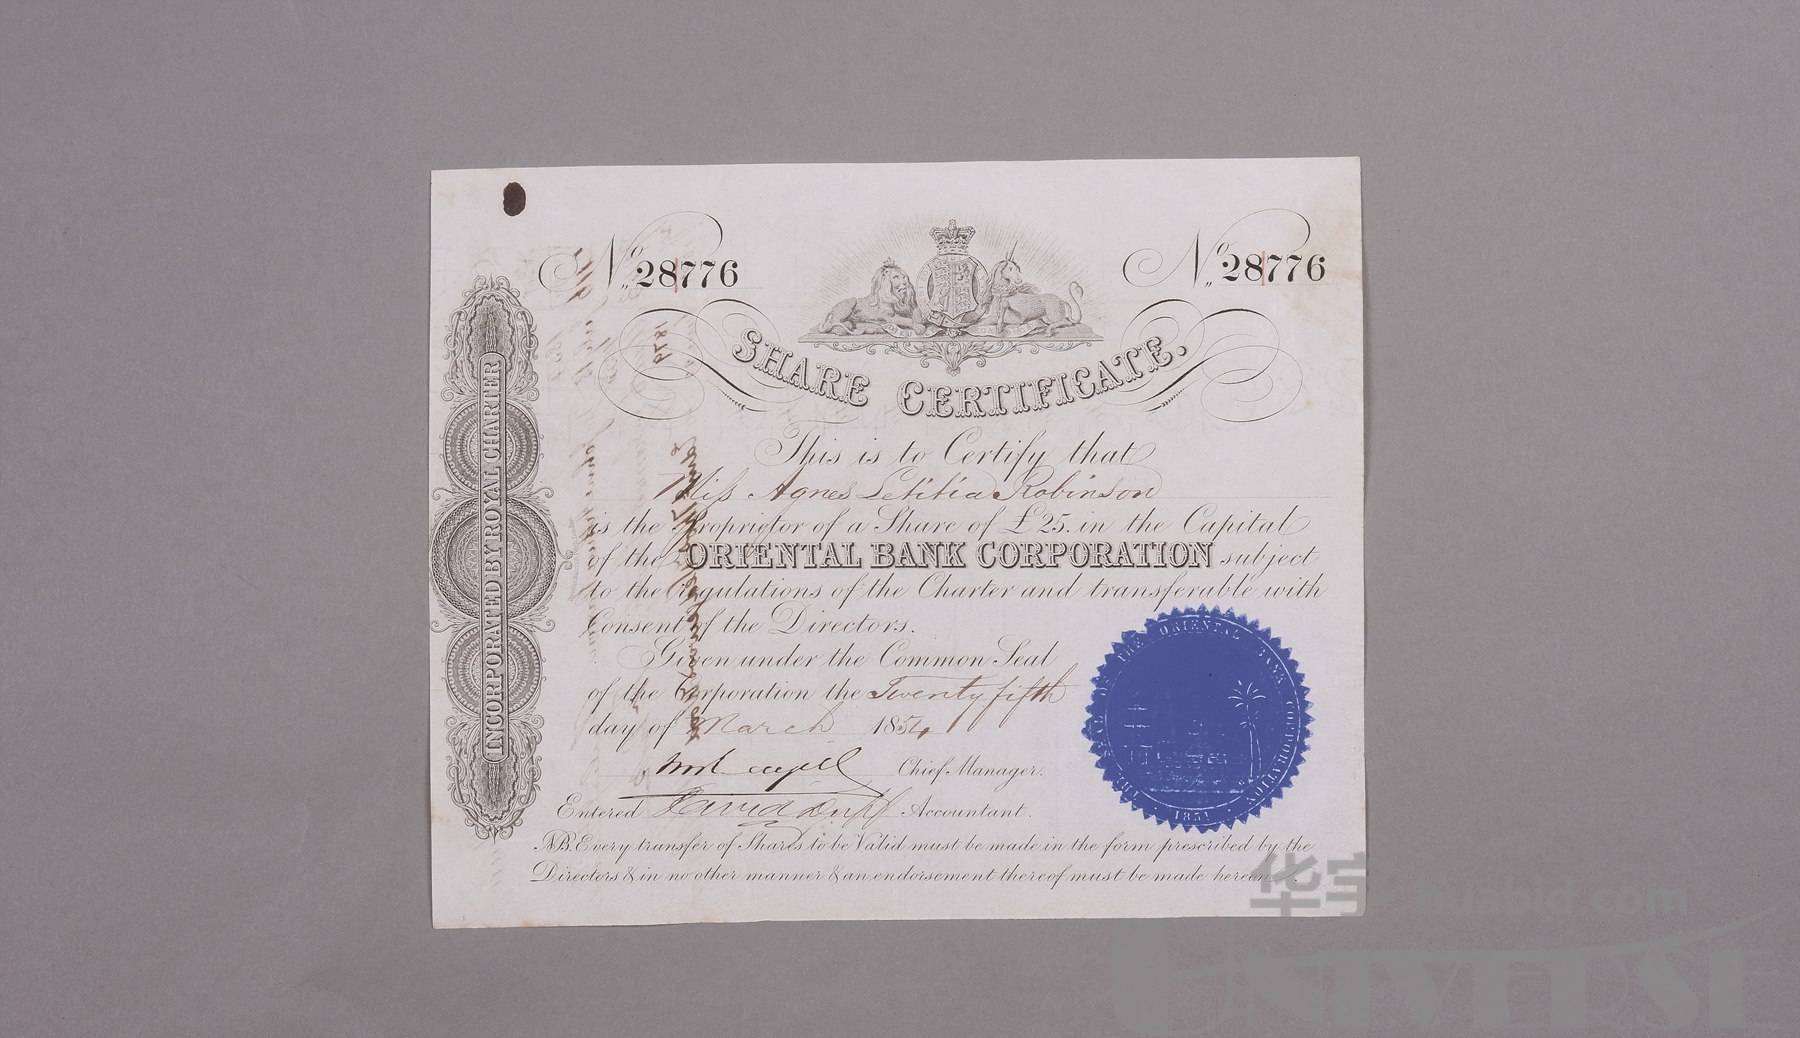 No 28776
No 28776
SHARE CERTIFICATE.
INCORPORATED BY ROYAL CHARTER
This is to Certify that
Miss Agnes Letitia Robinson
is the Proprietor of a Share of £25. in the Capital
of the ORIENTAL BANK CORPORATION subject
to the Regulations of the Charter and transferable with
Consent of the Directors.
Given under the Common Seal
of the Corporation the Twenty fifth
day of March 1854
Chief Manager.
Entered David Duff Accountant.
NB. Every transfer of Shares to be Valid must be made in the form prescribed by the
Directors & in no other manner & an endorsement thereof must be made hereon.
THE SEAL OF THE ORIENTAL BANK CORPORATION
1851
华宇 huabid.com
UNIVERSE